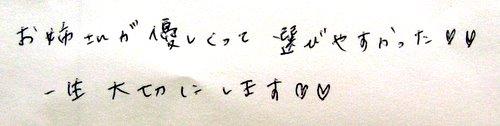 お姉さんが優しくって 選びやすかった♡♡
一生大切にします♡♡